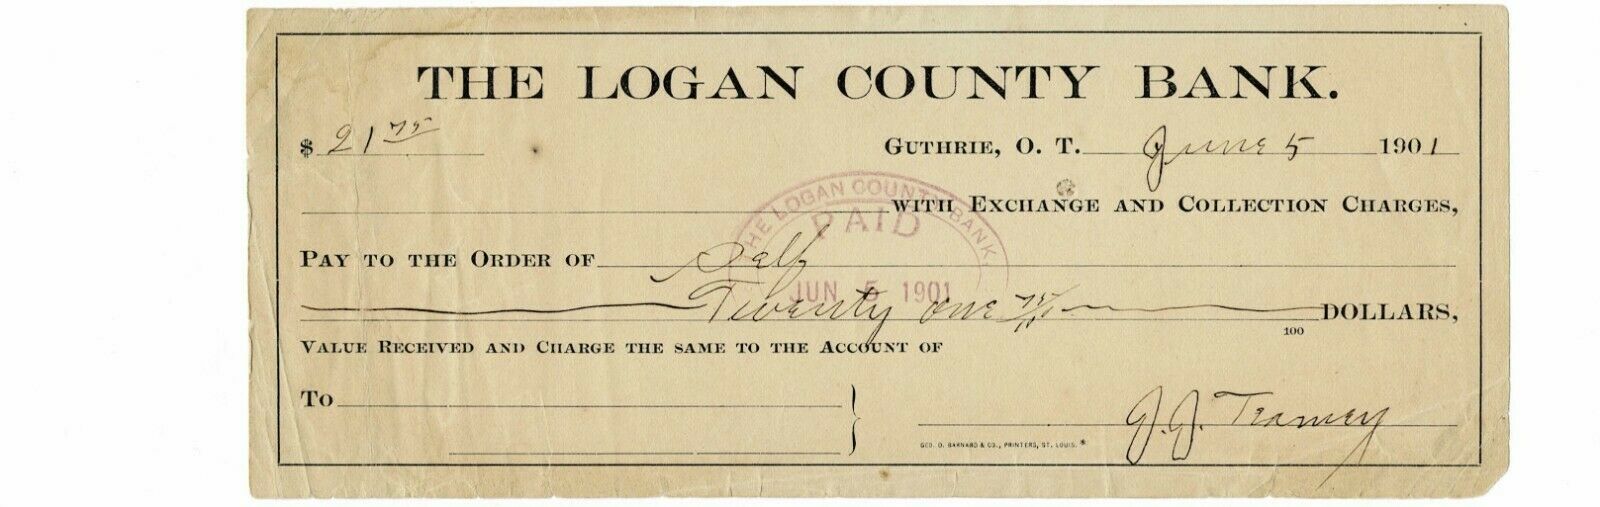 THE LOGAN COUNTY BANK.
$ 21 75
GUTHRIE, O. T. June 5 1901
WITH EXCHANGE AND COLLECTION CHARGES,
THE LOGAN COUNTY BANK.
PAID
JUN 5 1901
PAY TO THE ORDER OF Self
Twenty one 75/ 100 DOLLARS,
VALUE RECEIVED AND CHARGE THE SAME TO THE ACCOUNT OF
TO
J. J.
GEO. D. BARNARD & CO., PRINTERS, ST. LOUIS.